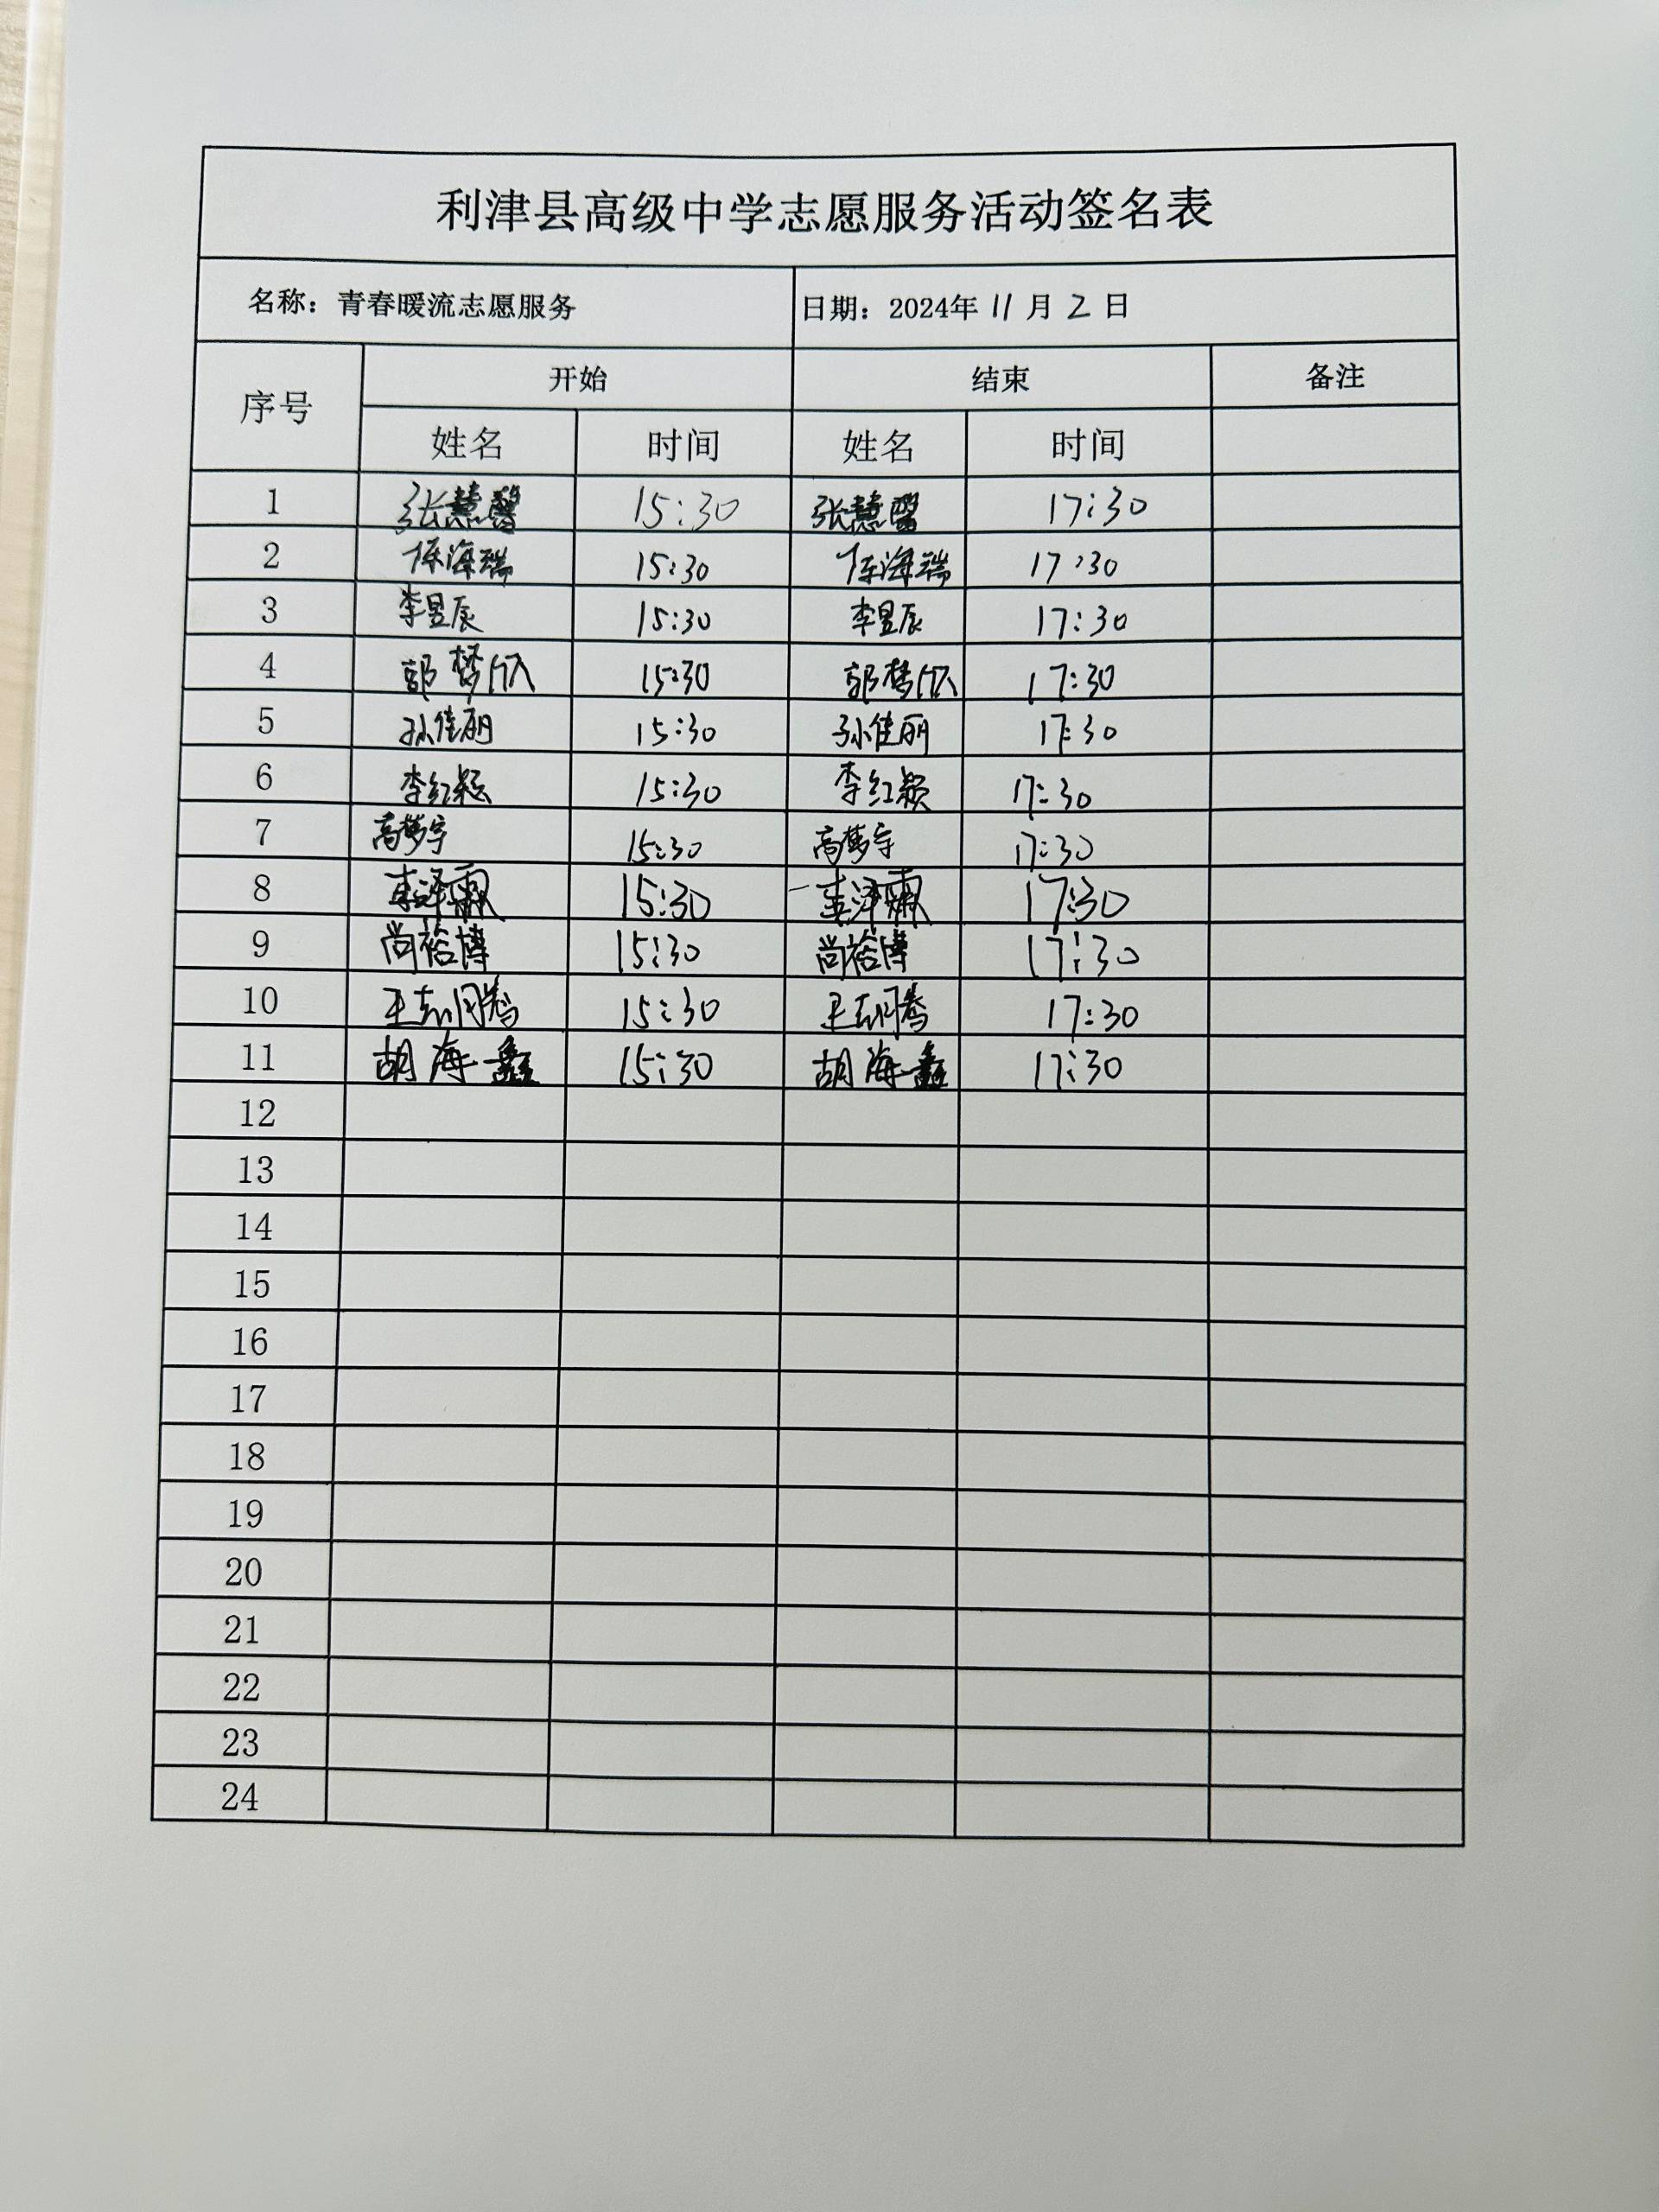 利津县高级中学志愿服务活动签名表
名称：青春暖流志愿服务 日期：2024年 11 月 2 日
序号 开始 结束 备注
姓名 时间 姓名 时间
1 张慧馨 15:30 张慧馨 17:30
2 陈海瑞 15:30 陈海瑞 17:30
3 李昱辰 15:30 李昱辰 17:30
4 郭梦 15:30 郭梦 17:30
5 孙佳丽 15:30 孙佳丽 17:30
6 李红颖 15:30 李红颖 17:30
7 高梦宇 15:30 高梦宇 17:30
8 李泽霖 15:30 李泽霖 17:30
9 尚裕博 15:30 尚裕博 17:30
10 王 15:30 王 17:30
11 胡海鑫 15:30 胡海鑫 17:30
12
13
14
15
16
17
18
19
20
21
22
23
24